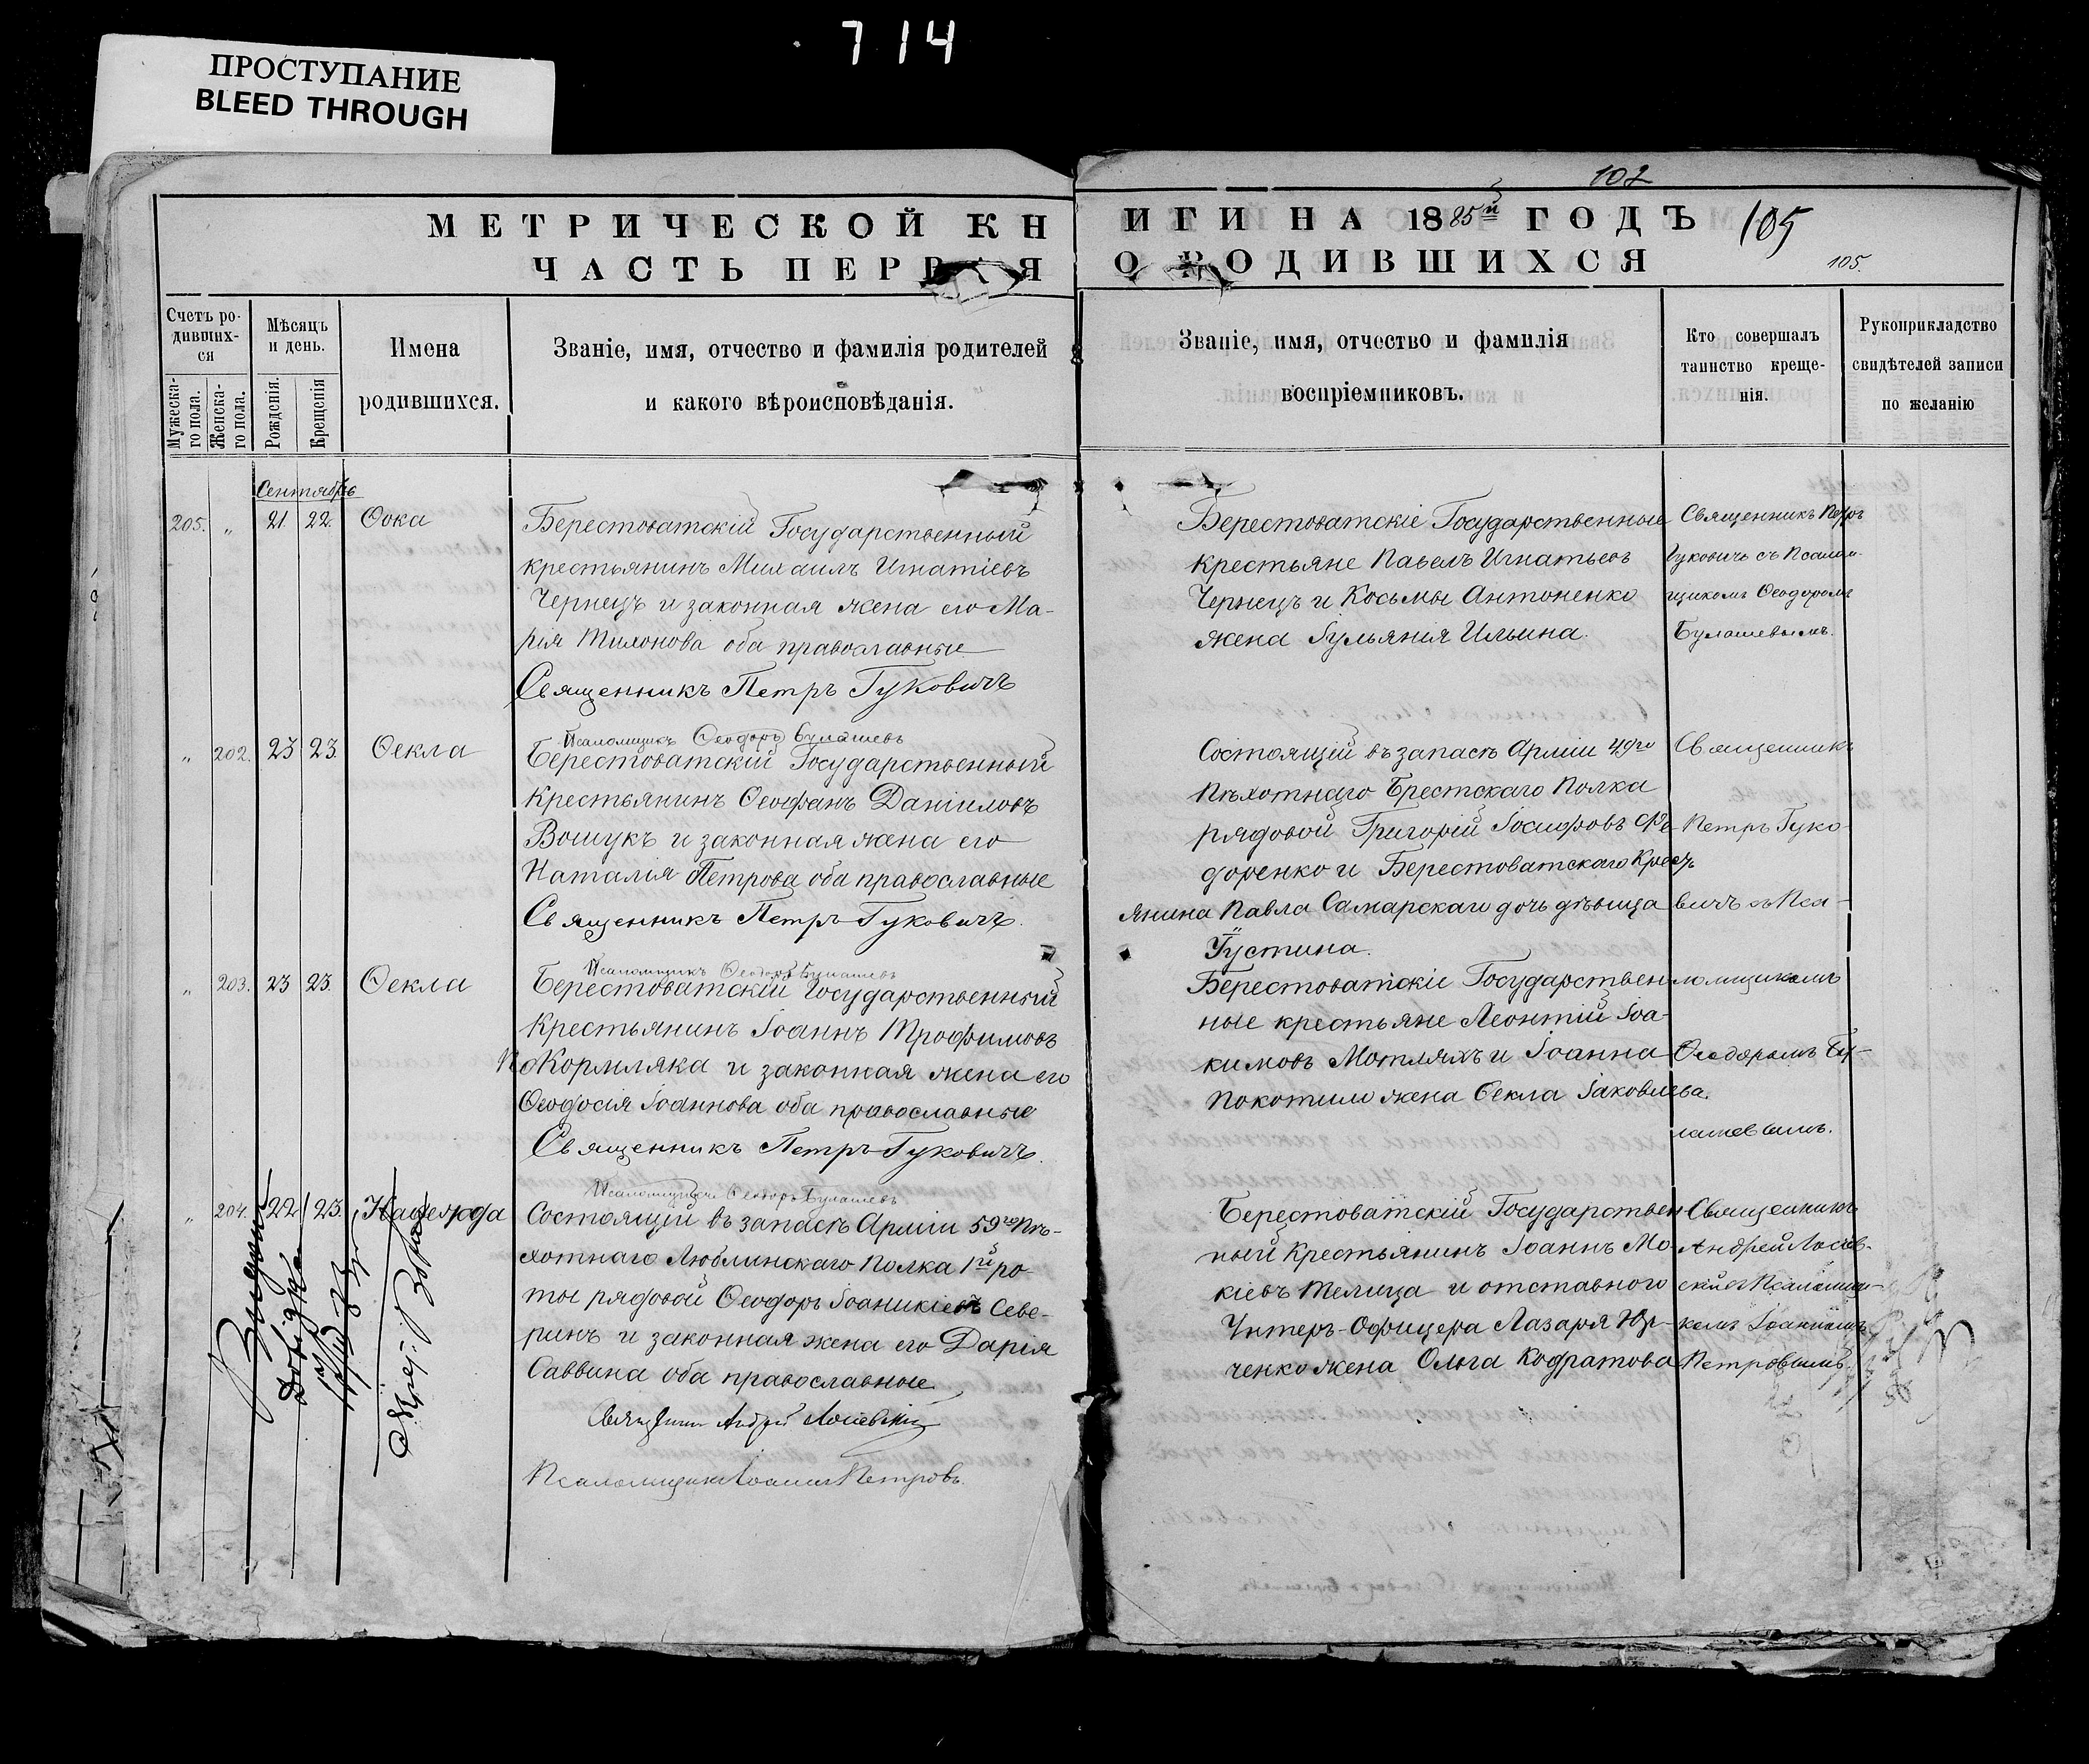 714
ПРОСТУПАНИЕ
BLEED THROUGH
102
МЕТРИЧЕСКОЙ КНИГИ НА 1885й ГОДЪ
105
ЧАСТЬ ПЕРВАЯ О РОДИВШИХСЯ
105.
Счетъ родившихся
Мужеска-го пола.
Женска-го пола.
Мѣсяцъ и день.
Рожденія.
Крещенія
Имена
родившихся.
Званіе, имя, отчество и фамилія родителей
и какого вѣроисповѣданія.
Званіе, имя, отчество и фамилія
воспріемниковъ.
Кто совершалъ
таинство креще-
нія.
Рукоприкладство
свидѣтелей записи
по желанію
Сентябрь
205. „ 21 22. Ѳока
Берестоватскій Государственный
крестьянинъ Михаилъ Игнатіевъ
Чернецъ и законная жена его Ма-
рія оба православные
Священникъ Петръ Гуковичъ
Псаломщикъ Ѳеодоръ Булашевъ
Берестоватскіе Государственные
крестьяне Павелъ Игнатьевъ
Чернецъ и Косьмы Антоненко
жена Іульянія Ильина.
Священникъ Петръ
Гуковичъ съ Псалом-
щикомъ Ѳеодоромъ
Булашевымъ.
„ 202. 23 23. Ѳекла
Берестоватскій Государственный
Крестьянинъ Ѳеофанъ Даніиловъ
Вошукъ и законная жена его
Наталія Петрова оба православные
Священникъ Петръ Гуковичъ.
Псаломщикъ Ѳеодоръ Булашевъ
Состоящій въ запасѣ Арміи 49го
Пѣхотнаго Брестскаго Полка
рядовой Григорій Іосифовъ Фе-
доренко и Берестоватскаго Крест
янина Павла Самарскаго дочь дѣвица
Іустина.
Священникъ
Петръ Гуко-
вичъ съ Пса-
ломщикомъ
Ѳеодоромъ Бу-
лашевымъ.
„ 203. 23 23. Ѳекла
Берестоватскій Государственный
Крестьянинъ Іоаннъ Трофимовъ
Покормляка и законная жена его
Ѳеодосія Іоаннова оба православные
Священникъ Петръ Гуковичъ.
Псаломщикъ Ѳеодоръ Булашевъ
Берестоватскіе Государствен-
ные крестьяне Леонтій Іоа-
кимовъ Мотляхъ и Іоанна
Покотило жена Ѳекла Іаковлева.
„ 204. 22 23. Надежда
Состоящій въ запасѣ Арміи 59го Пѣ-
хотнаго Люблинскаго Полка 1й ро-
ты рядовой Ѳеодоръ Іоаникіевъ Севе-
ринъ и законная жена его Дарія
Саввина оба православные
Священникъ Андрей Лосіевскій
Псаломщикъ Іоаннъ Петровъ.
Берестоватскій Государствен-
ный Крестьянинъ Іоаннъ Мо-
кіевъ Телица и отставного
Унтеръ-Офицера Лазаря Юр-
ченко жена Ольга Кодратова
Священникъ
Андрей Лосіев-
скій съ Псаломщи-
комъ Іоанномъ
Петровымъ.